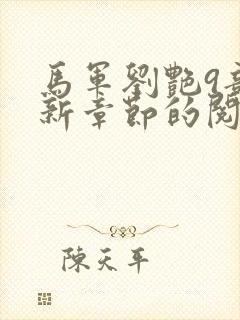 馬軍劉艷9章
新章節的閱
陳天平